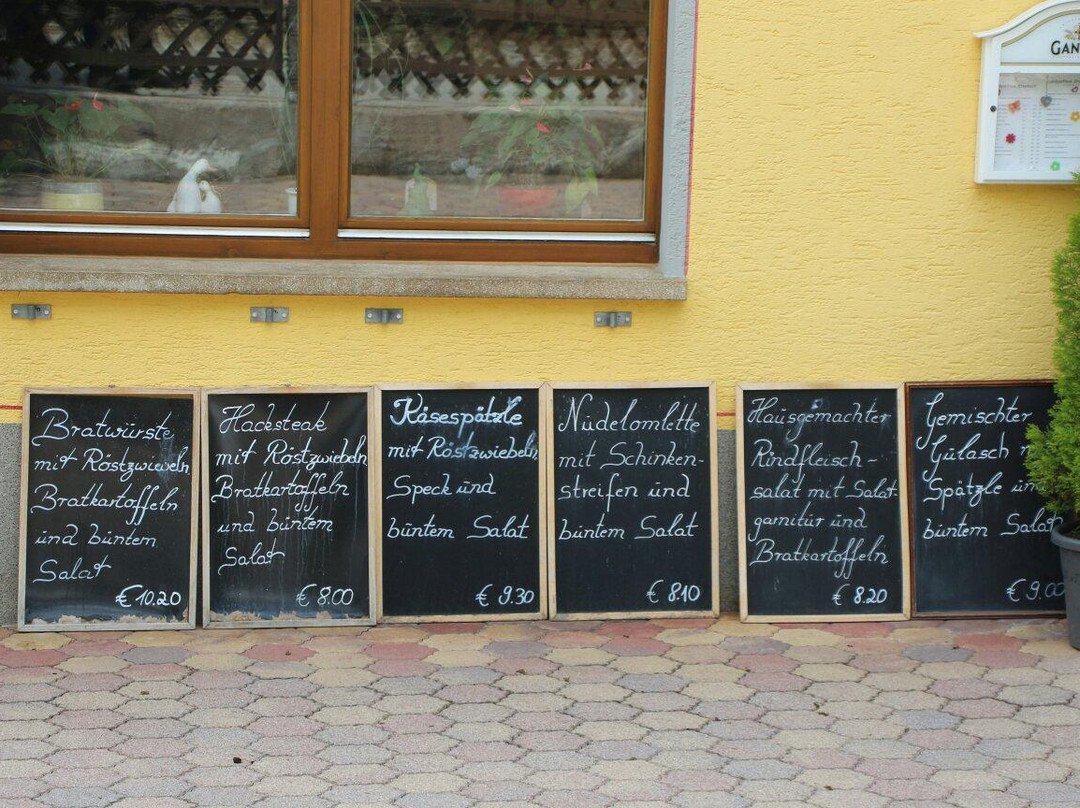 GAN
Bratwürste
mit Röstzwiebeln
Bratkartoffeln
und buntem
Salat
€ 10.20
Hacksteak
mit Röstzwiebeln
Bratkartoffeln
und buntem
Salat
€ 8.00
Käsespätzle
mit Röstzwiebeln
Speck und
buntem Salat
€ 9.30
Nudelomlette
mit Schinken-
streifen und
buntem Salat
€ 8.10
Hausgemachter
Rindfleisch-
salat mit Salat-
garnitur und
Bratkartoffeln
€ 8.20
Gemischter
Gulasch
Spätzle und
buntem Salat
€ 9.00